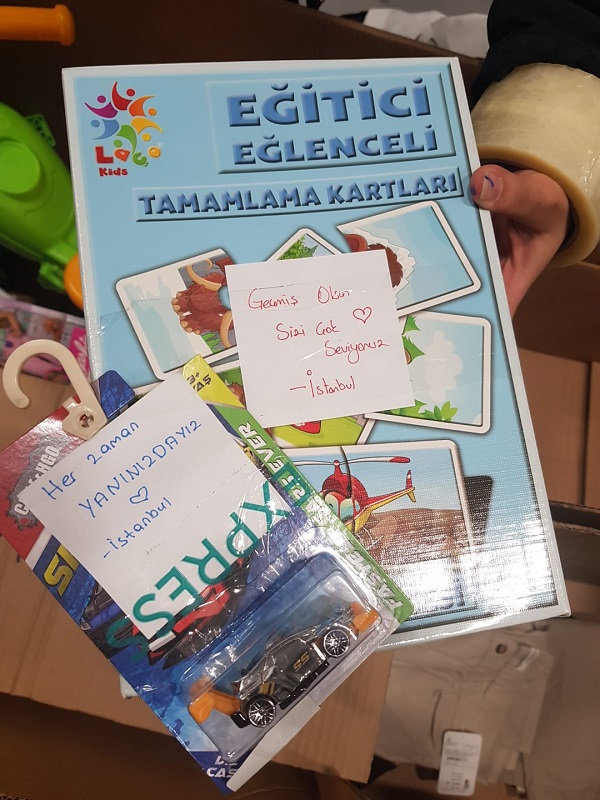 EĞİTİCİ
EĞLENCELİ
TAMAMLAMA KARTLARI
Laço
Kids
Geçmiş Olsun
Sizi Çok
Seviyoruz
-İstanbul
Her zaman
YANINIZDAYIZ
-İstanbul
XPRES
EVER
SS